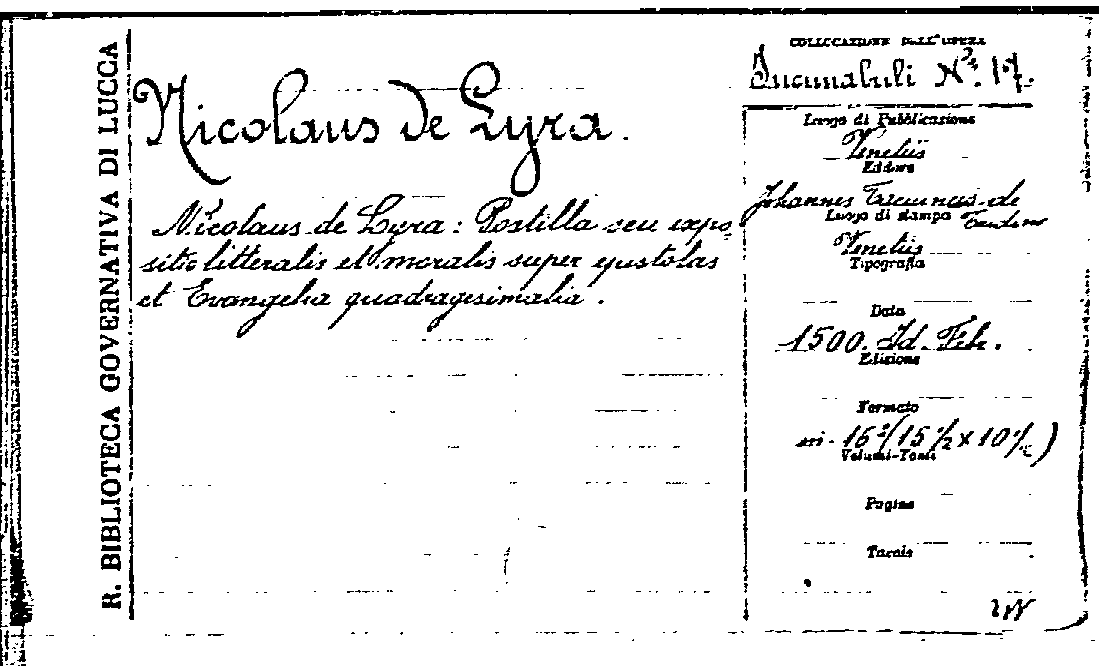 R. BIBLIOTECA GOVERNATIVA DI LUCCA
Nicolaus de Lyra.
Nicolaus de Lyra: Postilla seu expo-
sitio litteralis et moralis super epistolas
et Evangelia quadragesimalia.
COLLOCAZIONE DELL'OPERA
Incunabuli Nº. 17.
Luogo di Pubblicazione
Venetiis
Editore
Johannes Tacuinus de
Luogo di stampa
Venetiis
Tipografia
Data
1500. Id. Feb.
Edizione
Formato
in-16º (15½ x 10½)
Volumi-Tomi
Pagine
Tavole